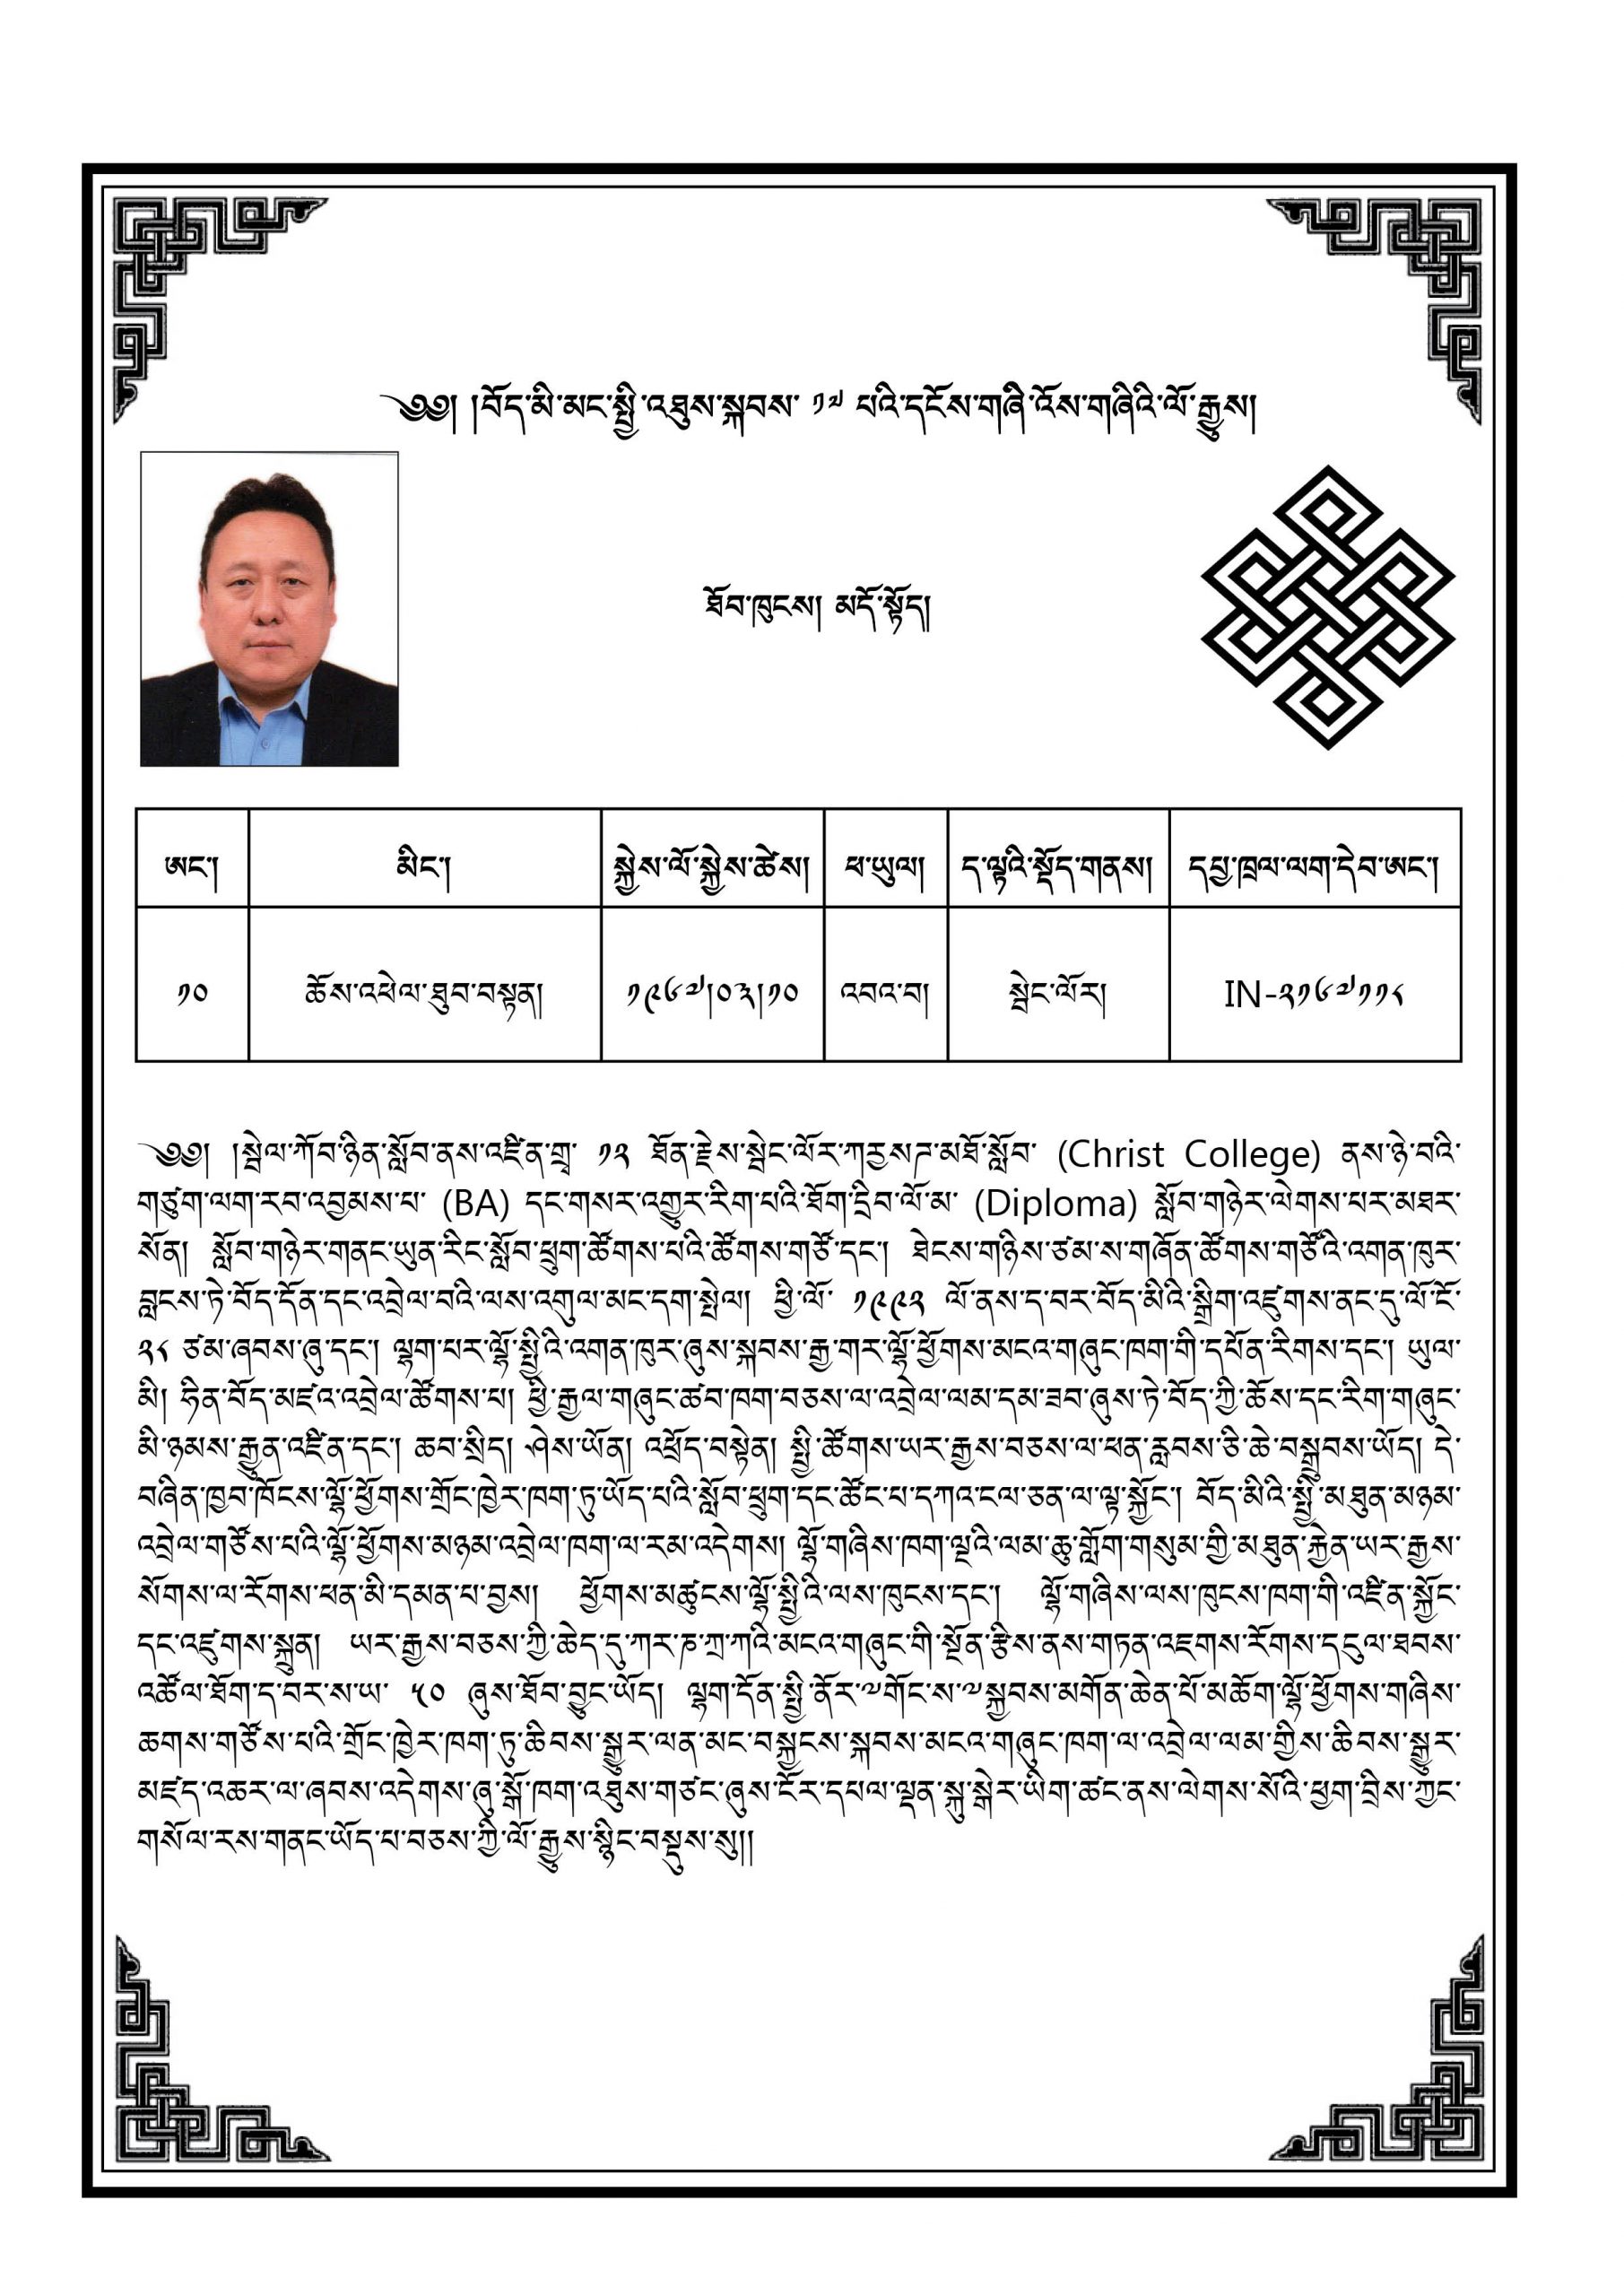 ༄༅། །བོད་མི་མང་སྤྱི་འཐུས་སྐབས་ ༡༧ པའི་དངོས་གཞི་འོས་གཞིའི་ལོ་རྒྱུས།
ཐོབ་ཁུངས། མདོ་སྟོད།
ཨང་། མིང་། སྐྱེས་ལོ་སྐྱེས་ཚེས། ཕ་ཡུལ། ད་ལྟའི་སྡོད་གནས། དཔྱ་ཁྲལ་ལག་དེབ་ཨང་།
༡༠ ཆོས་འཕེལ་ཐུབ་བསྟན། ༡༩༦༧།༠༣།༡༠ འབའ་བ། སྦེང་ལོར། IN-༢༡༦༧༡༡༨
༄༅། །སྦེལ་ཀོབ་ཉིན་སློབ་ནས་འཛིན་གྲྭ་ ༡༢ ཐོན་རྗེས་སྦེང་ལོར་ཀརྱསཊ་མཐོ་སློབ་ (Christ College) ནས་ཉེ་བའི་
གཙུག་ལག་རབ་འབྱམས་པ་ (BA) དང་གསར་འགྱུར་རིག་པའི་ཐོག་དྲིབ་ལོ་མ་ (Diploma) སློབ་གཉེར་ལེགས་པར་མཐར་
སོན། སློབ་གཉེར་གནང་ཡུན་རིང་སློབ་ཕྲུག་ཚོགས་པའི་ཚོགས་གཙོ་དང་། ཐེངས་གཉིས་ཙམ་ས་གཞོན་ཚོགས་གཙོའི་འགན་ཁུར་
བླངས་ཏེ་བོད་དོན་དང་འབྲེལ་བའི་ལས་འགུལ་མང་དག་སྤེལ། ཕྱི་ལོ་ ༡༩༩༢ ལོ་ནས་ད་བར་བོད་མིའི་སྒྲིག་འཛུགས་ནང་དུ་ལོ་ངོ་
༢༨ ཙམ་ཞབས་ཞུ་དང་། ལྷག་པར་ལྷོ་སྤྱིའི་འགན་ཁུར་ཞུས་སྐབས་རྒྱ་གར་ལྷོ་ཕྱོགས་མངའ་གཞུང་ཁག་གི་དཔོན་རིགས་དང་། ཡུལ་
མི། ཧིན་བོད་མཛའ་འབྲེལ་ཚོགས་པ། ཕྱི་རྒྱལ་གཞུང་ཚབ་ཁག་བཅས་ལ་འབྲེལ་ལམ་དམ་ཟབ་ཞུས་ཏེ་བོད་ཀྱི་ཆོས་དང་རིག་གཞུང་
མི་ཉམས་རྒྱུན་འཛིན་དང་། ཆབ་སྲིད། ཤེས་ཡོན། འཕྲོད་བསྟེན། སྤྱི་ཚོགས་ཡར་རྒྱས་བཅས་ལ་ཕན་རླབས་ཅི་ཆེ་བསྒྲུབས་ཡོད། དེ་
བཞིན་ཁྱབ་ཁོངས་ལྷོ་ཕྱོགས་གྲོང་ཁྱེར་ཁག་ཏུ་ཡོད་པའི་སློབ་ཕྲུག་དང་ཚོང་པ་དཀའ་ངལ་ཅན་ལ་ལྟ་སྐྱོང་། བོད་མིའི་སྤྱི་མཐུན་མཉམ་
འབྲེལ་གཙོས་པའི་ལྷོ་ཕྱོགས་མཉམ་འབྲེལ་ཁག་ལ་རམ་འདེགས། ལྷོ་གཞིས་ཁག་ལྔའི་ལམ་ཆུ་གློག་གསུམ་གྱི་མཐུན་རྐྱེན་ཡར་རྒྱས་
སོགས་ལ་རོགས་ཕན་མི་དམན་པ་བྱས། ཕྱོགས་མཚུངས་ལྷོ་སྤྱིའི་ལས་ཁུངས་དང་། ལྷོ་གཞིས་ལས་ཁུངས་ཁག་གི་འཛིན་སྐྱོང་
དང་འཛུགས་སྐྲུན། ཡར་རྒྱས་བཅས་ཀྱི་ཆེད་དུ་ཀར་ཎ་ཀྲ་ཀའི་མངའ་གཞུང་གི་སྔོན་རྩིས་ནས་གཏན་འཇགས་རོགས་དངུལ་ཐབས་
འཚོལ་ཐོག་ད་བར་ས་ཡ་ ༥༠ ཞུས་ཐོབ་བྱུང་ཡོད། ལྷག་དོན་སྤྱི་ནོར་༧གོང་ས་༧སྐྱབས་མགོན་ཆེན་པོ་མཆོག་ལྷོ་ཕྱོགས་གཞིས་
ཆགས་གཙོས་པའི་གྲོང་ཁྱེར་ཁག་ཏུ་ཆིབས་སྒྱུར་ལན་མང་བསྐྱངས་སྐབས་མངའ་གཞུང་ཁག་ལ་འབྲེལ་ལམ་གྱིས་ཆིབས་སྒྱུར་
མཛད་འཆར་ལ་ཞབས་འདེགས་ཞུ་སྒོ་ཁག་འཐུས་གཙང་ཞུས་ངོར་དཔལ་ལྡན་སྐུ་སྒེར་ཡིག་ཚང་ནས་ལེགས་སོའི་ཕྱག་བྲིས་ཀྱང་
གསོལ་རས་གནང་ཡོད་པ་བཅས་ཀྱི་ལོ་རྒྱུས་སྙིང་བསྡུས་སུ།།